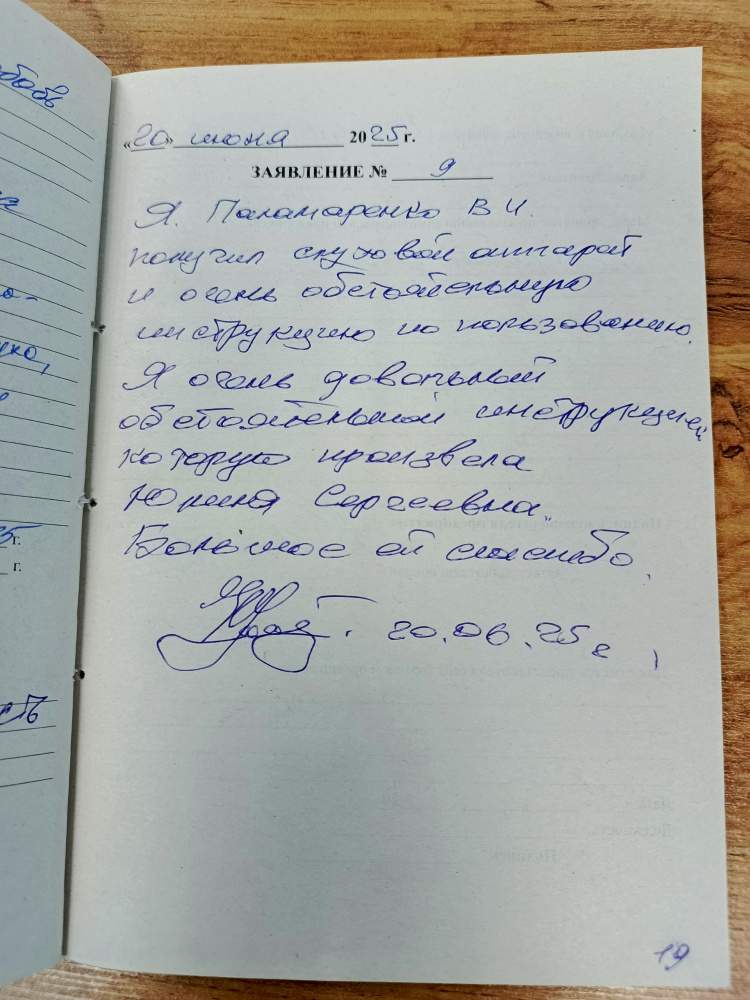 «20» июня 2025 г.
ЗАЯВЛЕНИЕ № 9
Я. Паламаренко В И.
получил слуховой аппарат
и очень обстоятельную
инструкцию по пользованию.
Я очень довольный
обстоятельной инструкцией
которую произвела
Юлия Сергеевна.
Большое ей спасибо.
20.06.25 г
19